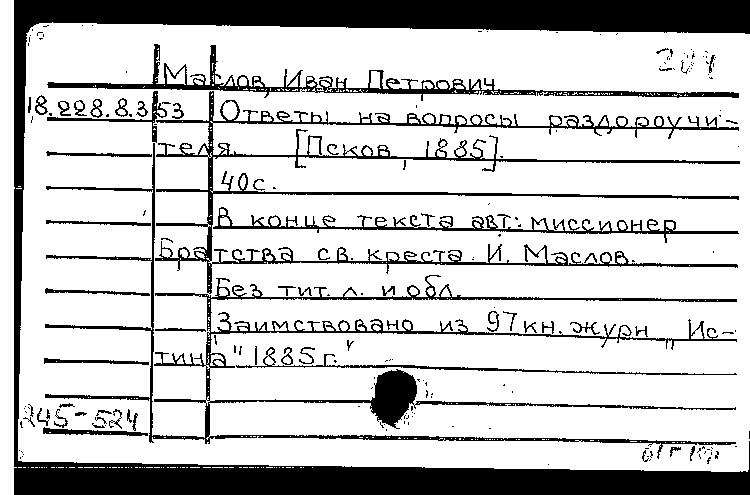 204
Маслов, Иван Петрович
18.228.8.353 Ответы на вопросы раздороучи-
теля. [Псков, 1885].
40с.
В конце текста авт.: миссионер
Братства св. креста И. Маслов.
Без тит. л. и обл.
Заимствовано из 97 кн. журн „Ис-
тина" 1885 г."
245-524